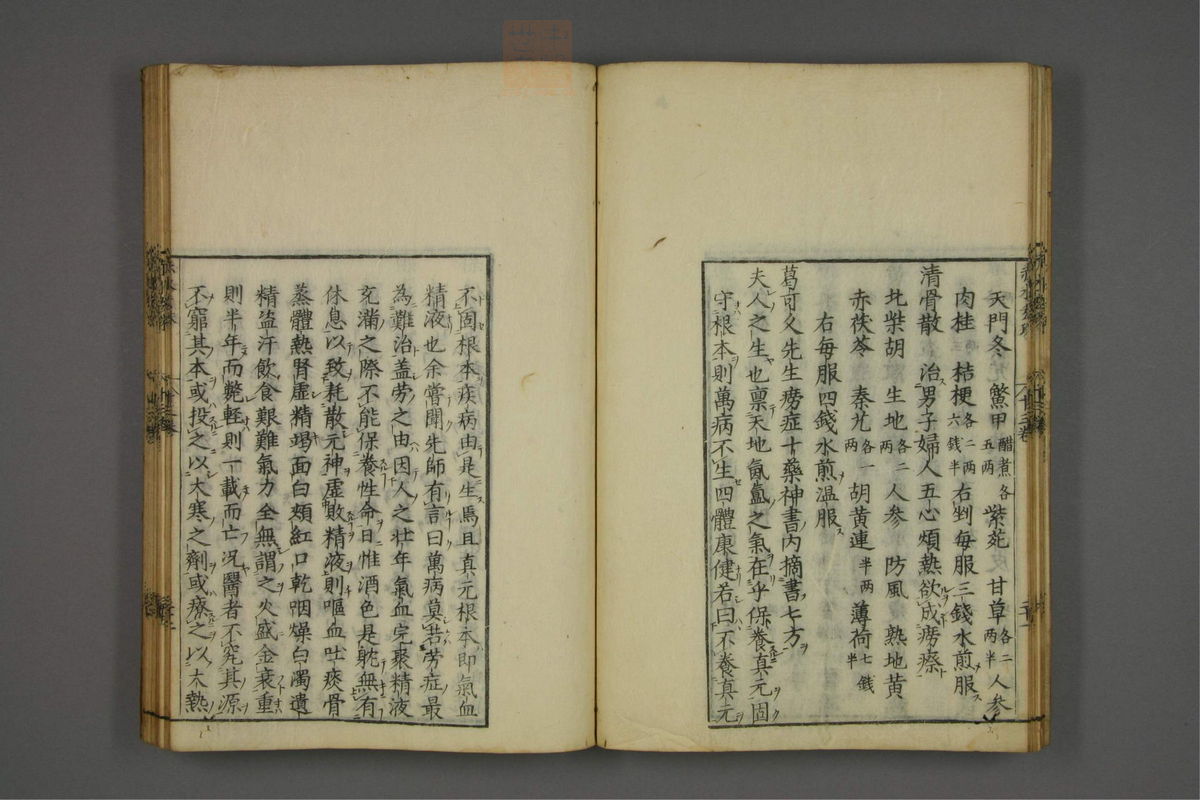 天門冬 鱉甲醋煮各五兩 紫苑 甘草各二兩半 人參
肉桂 桔梗各二兩六錢半 右剉每服三錢水煎服
清骨散 治男子婦人五心煩熱欲成癆瘵
北柴胡 生地各二兩 人參 防風 熟地黃
赤茯苓 秦艽各一兩 胡黃連半兩 薄荷七錢半
右每服四錢水煎溫服
葛可久先生癆症十藥神書內摘書七方
夫人之生也禀天地氤氳之氣在乎保養真元固
守根本則萬病不生四體康健若曰不養真元
不固根本疾病由是生焉且真元根本即氣血
精液也余嘗聞先師有言曰萬病莫若勞症最
為難治盖勞之由因人之壯年氣血完聚精液
充滿之際不能保養性命日惟酒色是躭無有
休息以致耗散元神虛敗精液則嘔血吐痰骨
蒸體熱腎虛精竭面白頰紅口乾咽燥白濁遺
精盜汗飲食艱難氣力全無謂之火盛金衰重
則半年而斃輕則一載而亡况醫者不究其源
不窮其本或投之以大寒之劑或療之以大熱